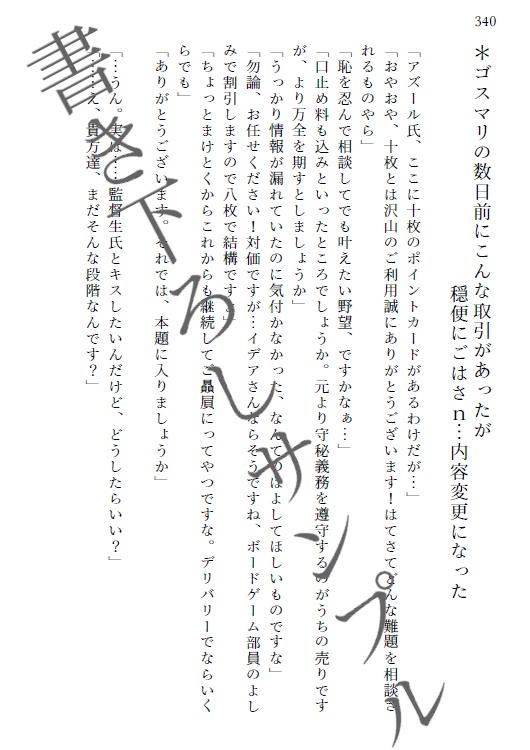 340
＊ゴスマリの数日前にこんな取引があったが
穏便にごはさｎ…内容変更になった
「アズール氏、ここに十枚のポイントカードがあるわけだが…」
「おやおや、十枚とは沢山のご利用誠にありがとうございます！はてさてどんな難題を相談さ
れるものやら」
「恥を忍んで相談してでも叶えたい野望、ですかなぁ…」
「口止め料も込みといったところでしょうか。元より守秘義務を遵守するのがうちの売りです
が、より万全を期すとしましょうか」
「うっかり情報が漏れていたのに気付かなかった、なんてのはよしてほしいものですな」
「勿論、お任せください！対価ですが…イデアさんならそうですね、ボードゲーム部員のよし
みで割引しますので八枚で結構ですよ」
「ちょっとまけとくからこれからも継続してご贔屓にってやつですな。デリバリーでならいく
らでも」
「ありがとうございます。それでは、本題に入りましょうか」
「…うん。実は……監督生氏とキスしたいんだけど、どうしたらいい？」
「……え、貴方達、まだそんな段階なんです？」
書き下ろしサンプル